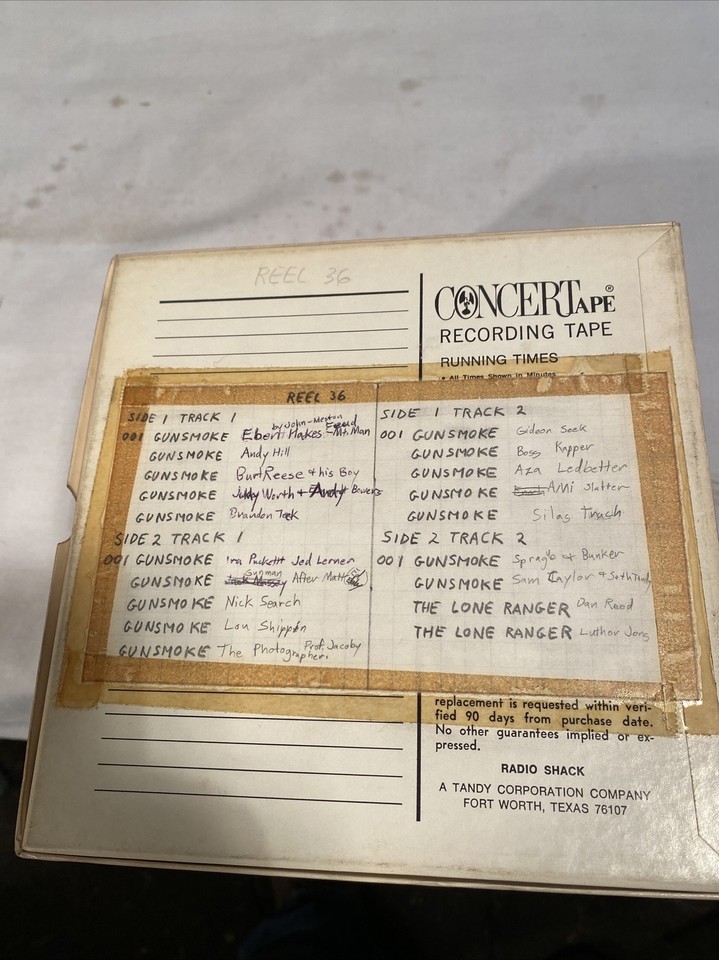 REEL 36
CONCERTAPE®
RECORDING TAPE
RUNNING TIMES
• All Times Shown in Minutes
REEL 36
SIDE 1 TRACK 1
by John Meston
001 GUNSMOKE Ebert Hakes Mt. Man
GUNSMOKE Andy Hill
GUNSMOKE Burt Reese + his Boy
GUNSMOKE Judy Worth + Andy Bowers
GUNSMOKE Brandon Teek
SIDE 2 TRACK 1
001 GUNSMOKE Ira Puckett Jed Lerner
GUNSMOKE Gunman After Matt
GUNSMOKE Nick Search
GUNSMOKE Lou Shippin
GUNSMOKE The Photographer. Prof. Jacoby
SIDE 1 TRACK 2
001 GUNSMOKE Gideon Seek
GUNSMOKE Boss Kapper
GUNSMOKE Aza Ledbetter
GUNSMOKE AMi Slatter
GUNSMOKE Silas
SIDE 2 TRACK 2
001 GUNSMOKE Sprage + Bunker
GUNSMOKE Sam Taylor + Seth
THE LONE RANGER Dan Reed
THE LONE RANGER Luthor
replacement is requested within veri-
fied 90 days from purchase date.
No other guarantees implied or ex-
pressed.
RADIO SHACK
A TANDY CORPORATION COMPANY
FORT WORTH, TEXAS 76107